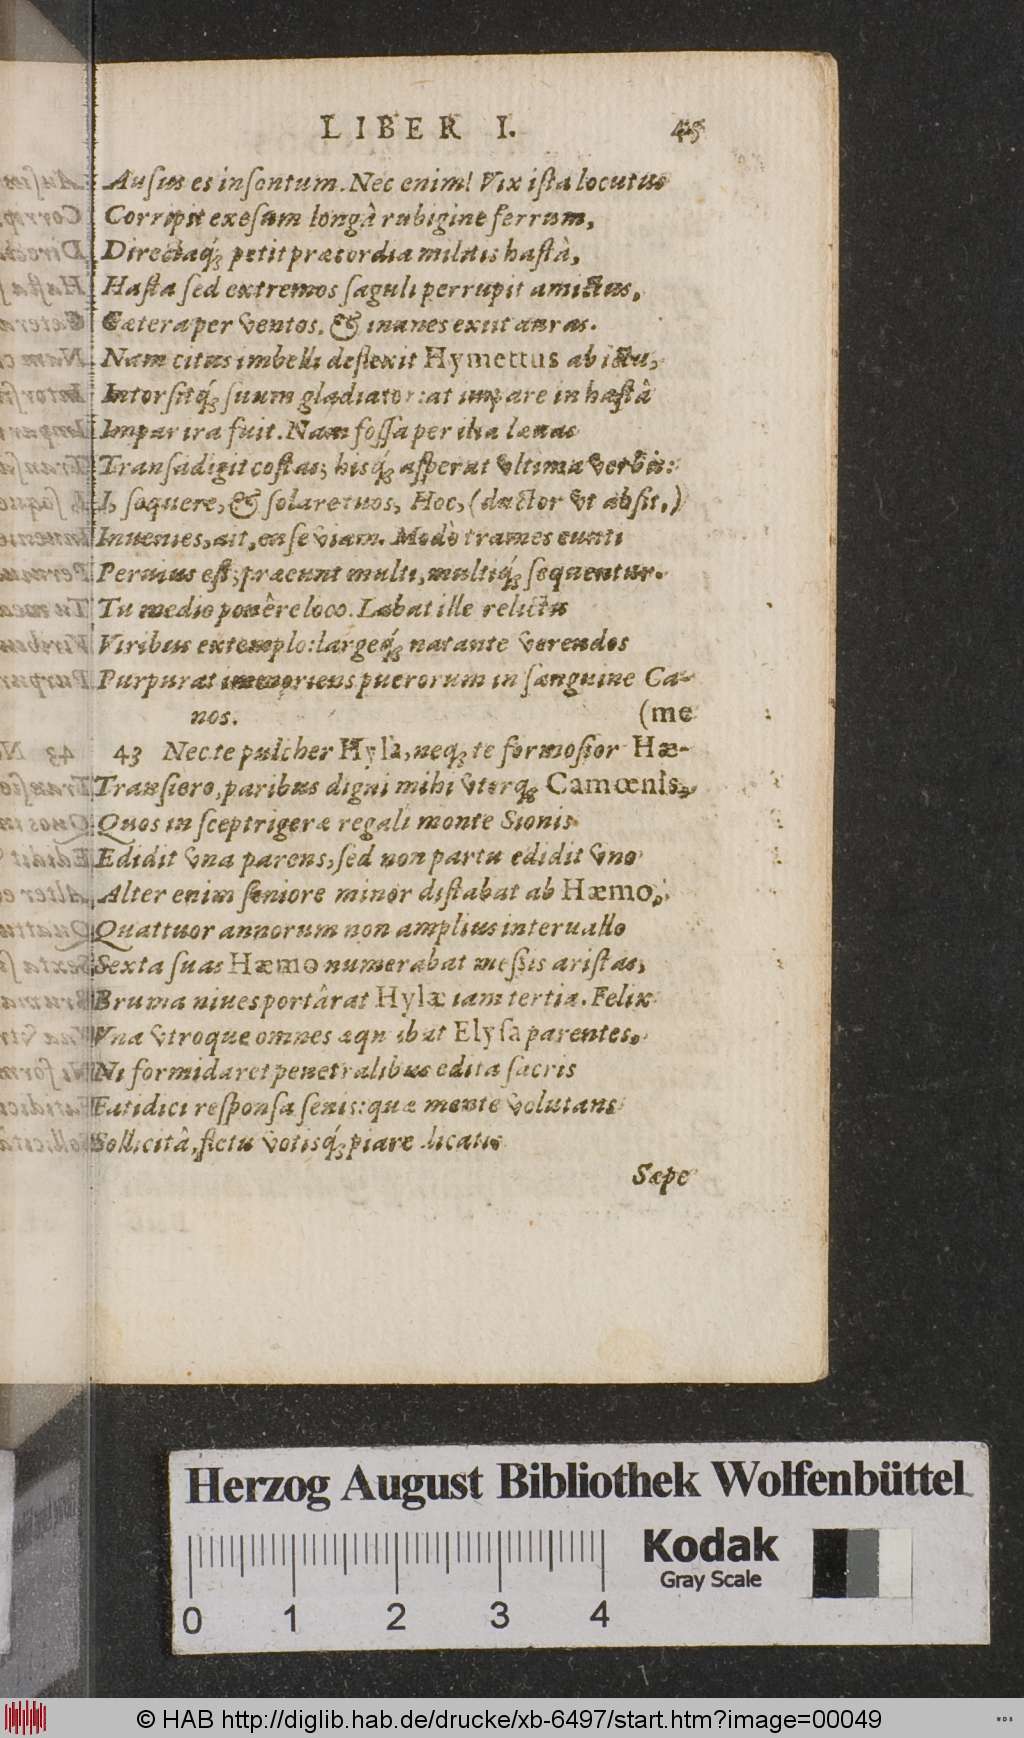 LIBER I. 45
Ausus es insontum. Nec enim! Vix ista locutus
Corripit exesam longà rubigine ferrum,
Directaq́; petit præcordia militis hastà,
Hasta sed extremos saguli perrupit amictus,
Cætera per ventos, & inanes exiit auras.
Nam citus imbelli deflexit Hymettus ab ictu,
Intorsitq́; suum gladiator: at impare in hastâ
Impar ira fuit. Nam fossa per ilia lævas
Transadigit costas; hisq́; asperat vltima verbis:
I, sequere, & solare tuos, Hoc, (ductor vt absit,)
Inuenies, ait, ense viam. Modò trames eunti
Peruius est; præeunt multi, multiq́; sequentur.
Tu medio ponêre loco. Labat ille relictus
Viribus extemplo: largeq́; natante verendos
Purpurat immoriens puerorum in sanguine Ca-
nos. (me
43 Nec te pulcher Hyla, neq; te formosior Hæ-
Transiero, paribus digni mihi vterq; Camœnis,
Quos in sceptrigeræ regali monte Sionis
Edidit vna parens, sed non partu edidit vno
Alter enim seniore minor distabat ab Hæmo,
Quattuor annorum non amplius interuallo
Sexta suas Hæmo numerabat messis aristas,
Bruma niues portârat Hylæ iam tertia. Felix
Vna vtroque omnes æquabat Elysa parentes,
Ni formidaret penetralibus edita sacris
Fatidici responsa senis: quæ mente volutans
Sollicitâ, fletu votisq́; piare licatis
Sæpe
Herzog August Bibliothek Wolfenbüttel
Kodak
Gray Scale
0 1 2 3 4
© HAB http://diglib.hab.de/drucke/xb-6497/start.htm?image=00049